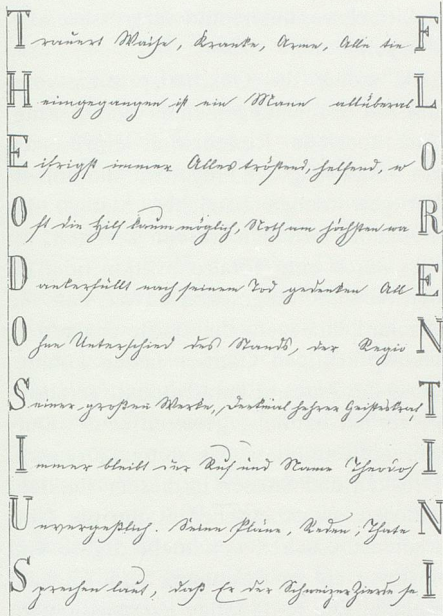 Trauert Waise, Kranke, Arme, Alle tieF
Heimgegangen ist ein Mann allüberalL
Eifrigst immer Alles tröstend, helfend, wO
Oft die Hilf kaum möglich, Noth am höchsten waR
Dankerfüllt nach seinem Tod gedenken AllE
Ohne Unterschied des Stands, der RegioN
Seiner großen Werke, Denkmal hehrer GeisteskrafT
Immer bleibt der Ruf und Name TheodosI
Unvergeßlich. Seine Pläne, Reden, ThateN
Sprechen laut, daß Er der Schweizer Zierde seI